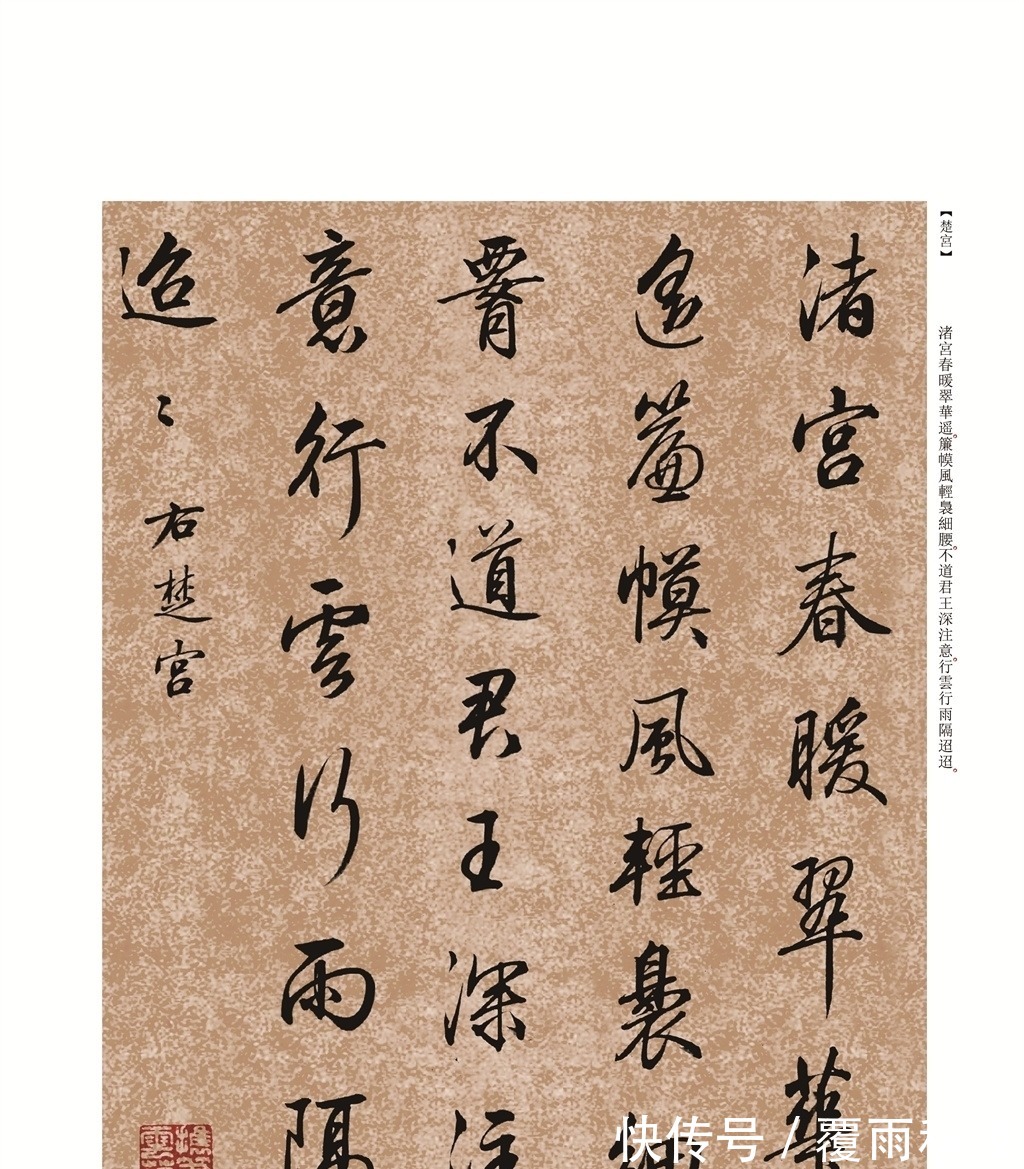 【楚宮】
渚宮春暖翠華遥。簾幙風輕褭細腰。不道君王深注意。行雲行雨隔迢迢。
渚宮春暖翠華
遙簾幙風輕褭細
腰不道君王深注
意行雲行雨隔
迢〻
右楚宮
快传号 / 覆雨